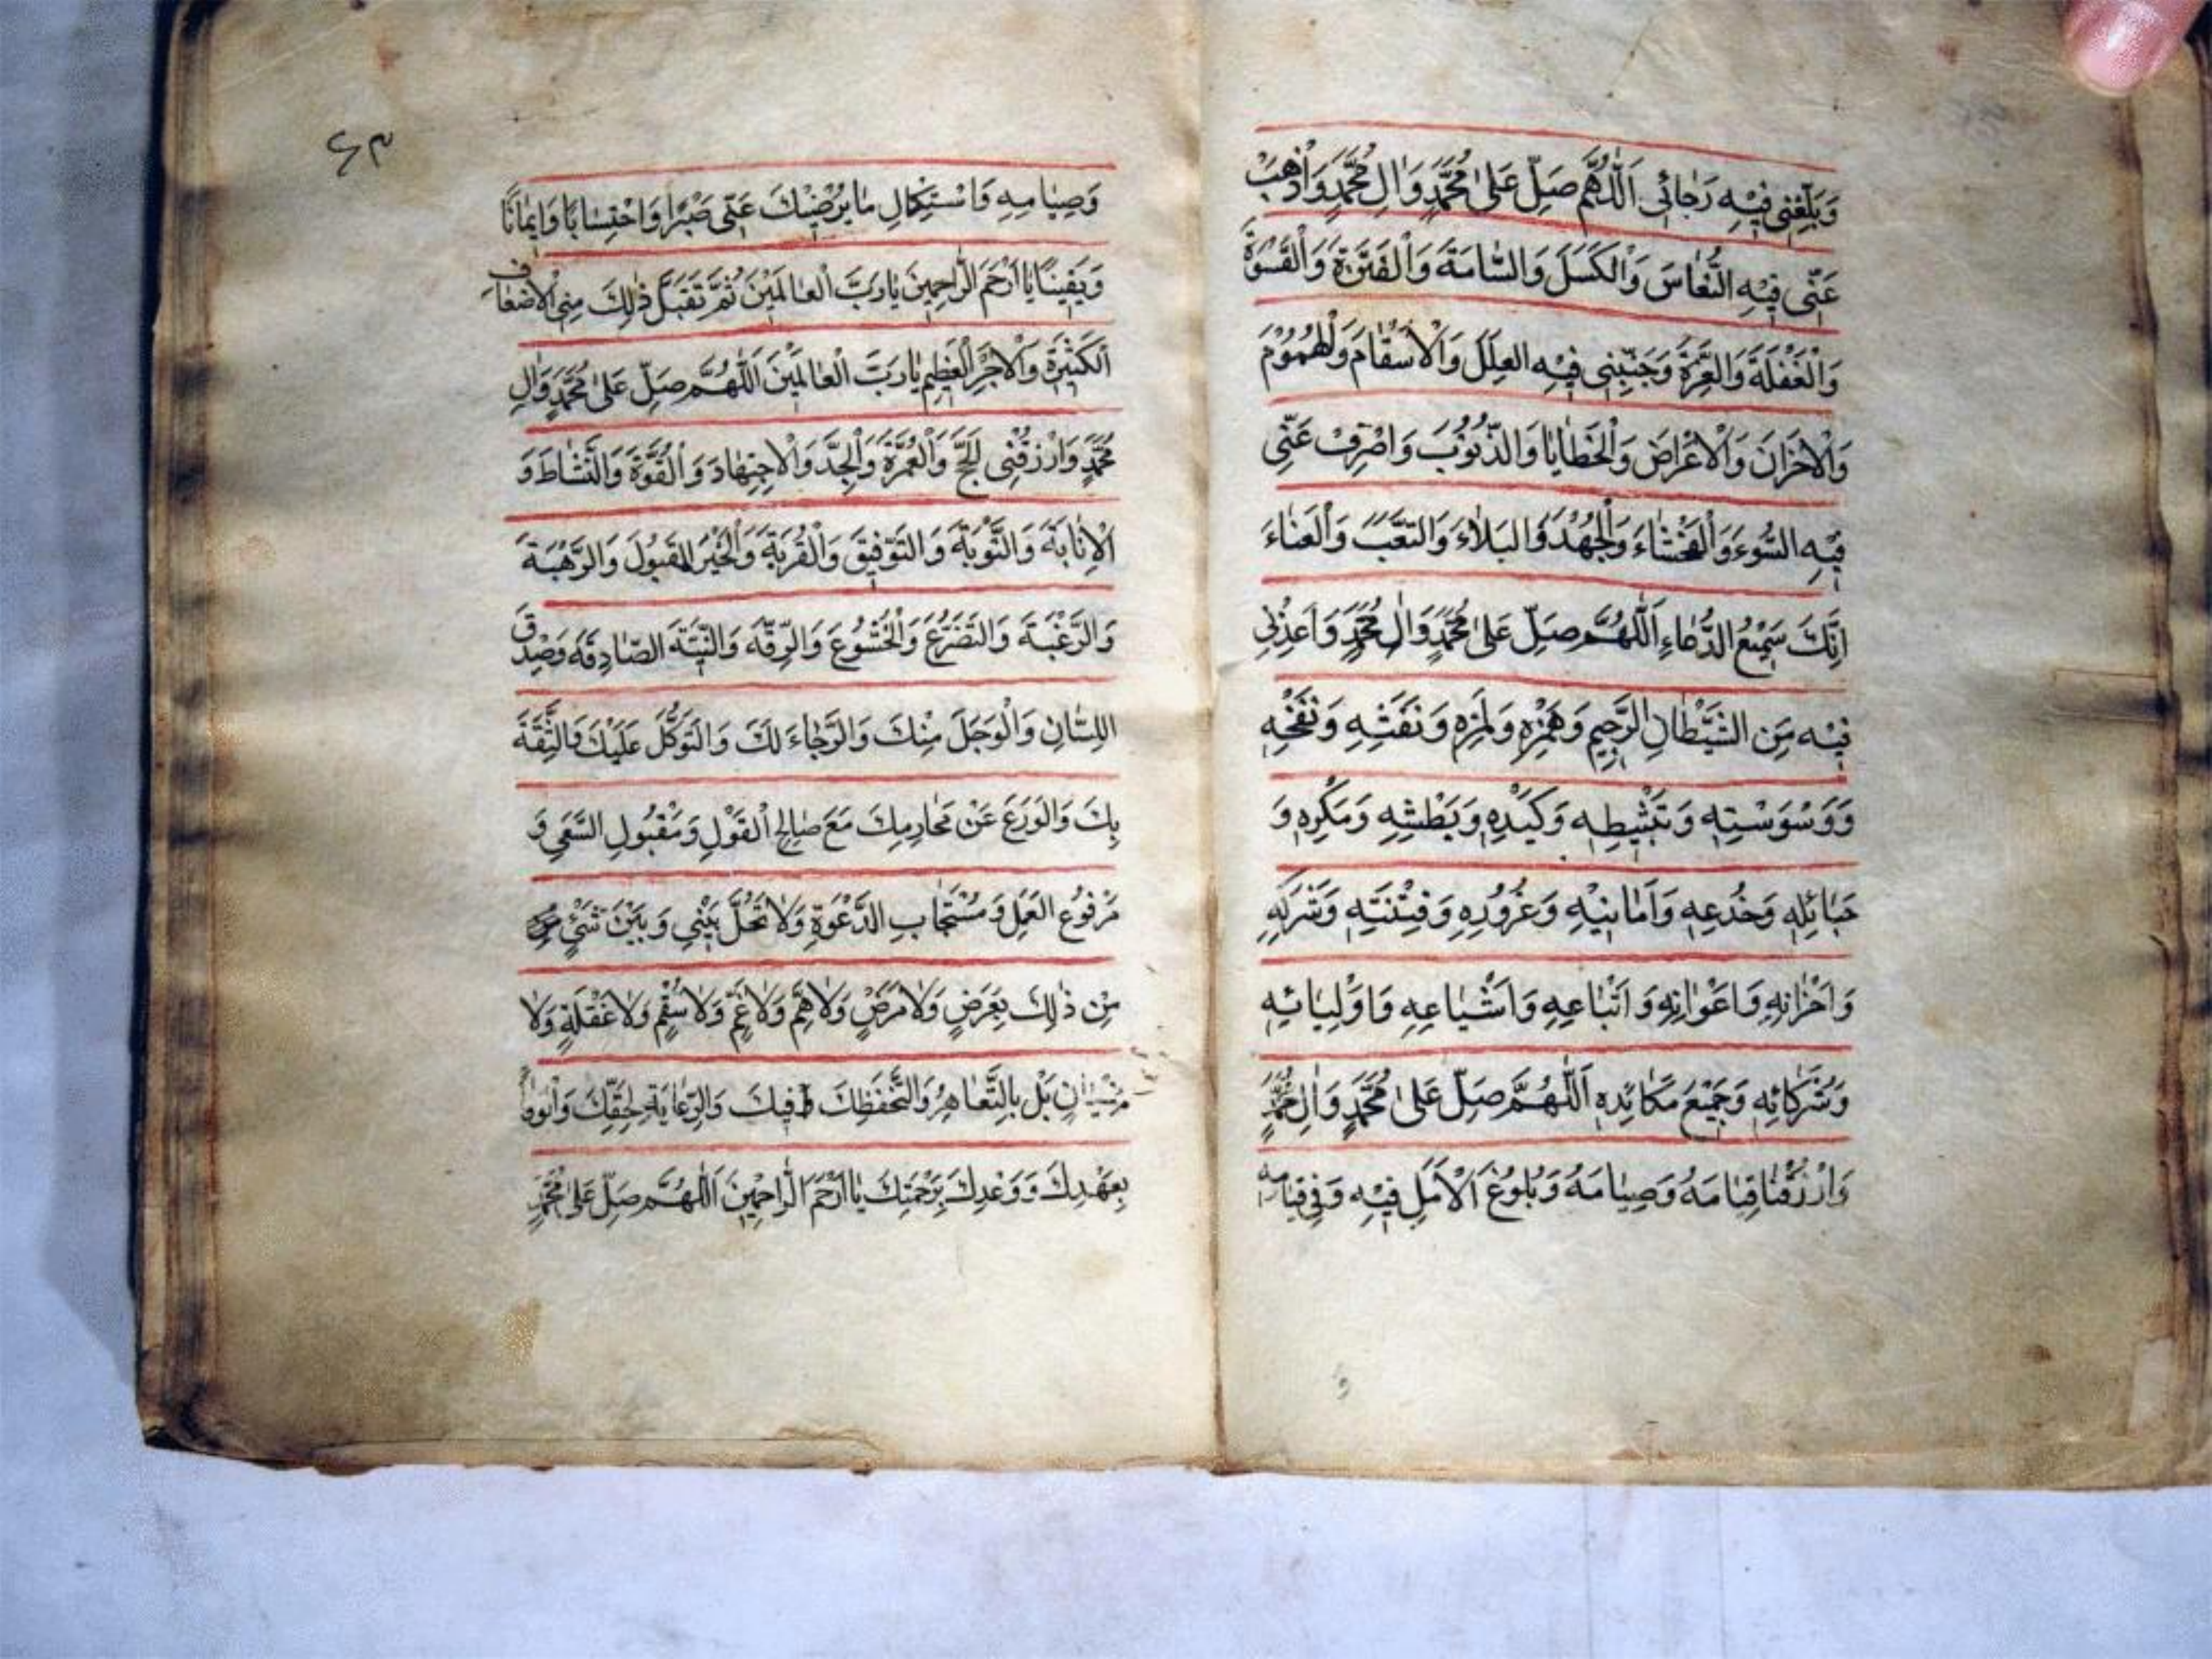 وَبَلِّغْنِي فِيْهِ رَجَائِي اَللّٰهُمَّ صَلِّ عَلٰى مُحَمَّدٍ وَاٰلِ مُحَمَّدٍ وَاَذْهِبْ
عَنِّي فِيْهِ النُّعَاسَ وَالْكَسَلَ وَالسَّامَةَ وَالْفَتْرَةَ وَالْقَسْوَةَ
وَالْغَفْلَةَ وَالْغِرَّةَ وَجَنِّبْنِي فِيْهِ العِلَلَ وَالْاَسْقَامَ وَالْهُمُوْمَ
وَالْاَحْزَانَ وَالْاَعْرَاضَ وَالْخَطَايَا وَالذُّنُوْبَ وَاصْرِفْ عَنِّي
فِيْهِ السُّوءَ وَالْفَحْشَاءَ وَالْجُهْدَ وَالبَلَاءَ وَالتَّعَبَ وَالْعَنَاءَ
اِنَّكَ سَمِيْعُ الدُّعَاءِ اَللّٰهُمَّ صَلِّ عَلٰى مُحَمَّدٍ وَاٰلِ مُحَمَّدٍ وَاَعِذْنِي
فِيْهِ مِنَ الشَّيْطَانِ الرَّجِيْمِ وَهَمْزِهِ وَلَمْزِهِ وَنَفْثِهِ وَنَفْخِهِ
وَوَسْوَسَتِهِ وَتَثْبِيْطِهِ وَكَيْدِهِ وَبَطْشِهِ وَمَكْرِهِ وَ
حَبَائِلِهِ وَخُدَعِهِ وَاَمَانِيْهِ وَغُرُوْرِهِ وَفِتْنَتِهِ وَشَرَكِهِ
وَاَحْزَانِهِ وَاَعْوَانِهِ وَاَتْبَاعِهِ وَاَشْيَاعِهِ وَاَوْلِيَائِهِ
وَشُرَكَائِهِ وَجَمِيْعِ مَكَائِدِهِ اَللّٰهُمَّ صَلِّ عَلٰى مُحَمَّدٍ وَاٰلِ مُحَمَّدٍ
وَارْزُقْنَا قِيَامَهُ وَصِيَامَهُ وَبُلُوْغَ الْاَمَلِ فِيْهِ وَفِي قِيَامِهِ
٦٣
وَصِيَامِهِ وَاسْتِكْمَالِ مَا يُرْضِيْكَ عَنِّي صَبْرًا وَاحْتِسَابًا وَاِيْمَانًا
وَيَقِيْنًا يَا اَرْحَمَ الرَّاحِمِيْنَ يَا رَبَّ الْعَالَمِيْنَ ثُمَّ تَقَبَّلْ ذٰلِكَ مِنِّي الْاَضْعَافِ
الْكَثِيْرَةِ وَالْاَجْرِ الْعَظِيْمِ يَا رَبَّ الْعَالَمِيْنَ اَللّٰهُمَّ صَلِّ عَلٰى مُحَمَّدٍ وَاٰلِ
مُحَمَّدٍ وَارْزُقْنِي الْحَجَّ وَالْعُمْرَةَ وَالْجِدَّ وَالْاِجْتِهَادَ وَالْقُوَّةَ وَالنَّشَاطَ وَ
الْاِنَابَةَ وَالتَّوْبَةَ وَالتَّوْفِيْقَ وَالْقُرْبَةَ وَالْخَيْرَ الْمَقْبُوْلَ وَالرَّهْبَةَ
وَالرَّغْبَةَ وَالتَّضَرُّعَ وَالْخُشُوْعَ وَالرِّقَّةَ وَالنِّيَّةَ الصَّادِقَةَ وَصِدْقَ
اللِّسَانِ وَالْوَجَلَ مِنْكَ وَالرَّجَاءَ لَكَ وَالتَّوَكُّلَ عَلَيْكَ وَالثِّقَةَ
بِكَ وَالْوَرَعَ عَنْ مَحَارِمِكَ مَعَ صَالِحِ الْقَوْلِ وَمَقْبُوْلِ السَّعْيِ وَ
مَرْفُوْعِ الْعَمَلِ وَمُسْتَجَابِ الدَّعْوَةِ وَلَا تَحُلْ بَيْنِي وَبَيْنَ شَيْءٍ
مِنْ ذٰلِكَ بِعَرَضٍ وَلَا مَرَضٍ وَلَا هَمٍّ وَلَا غَمٍّ وَلَا سُقْمٍ وَلَا غَفْلَةٍ وَلَا
نِسْيَانٍ بَلْ بِالتَّعَاهُدِ وَالتَّحَفُّظِ لَكَ وَفِيْكَ وَالرِّعَايَةِ لِحَقِّكَ وَالْوَفَاءِ
بِعَهْدِكَ وَوَعْدِكَ بِرَحْمَتِكَ يَا اَرْحَمَ الرَّاحِمِيْنَ اَللّٰهُمَّ صَلِّ عَلٰى مُحَمَّدٍ